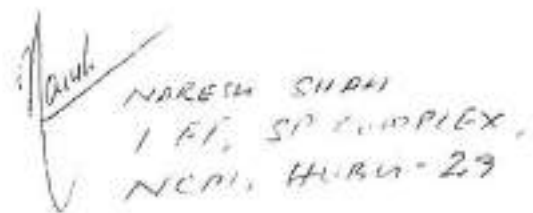 NARESH SHAH
1 FF, SP COMPLEX,
NCM, HUBLI-29